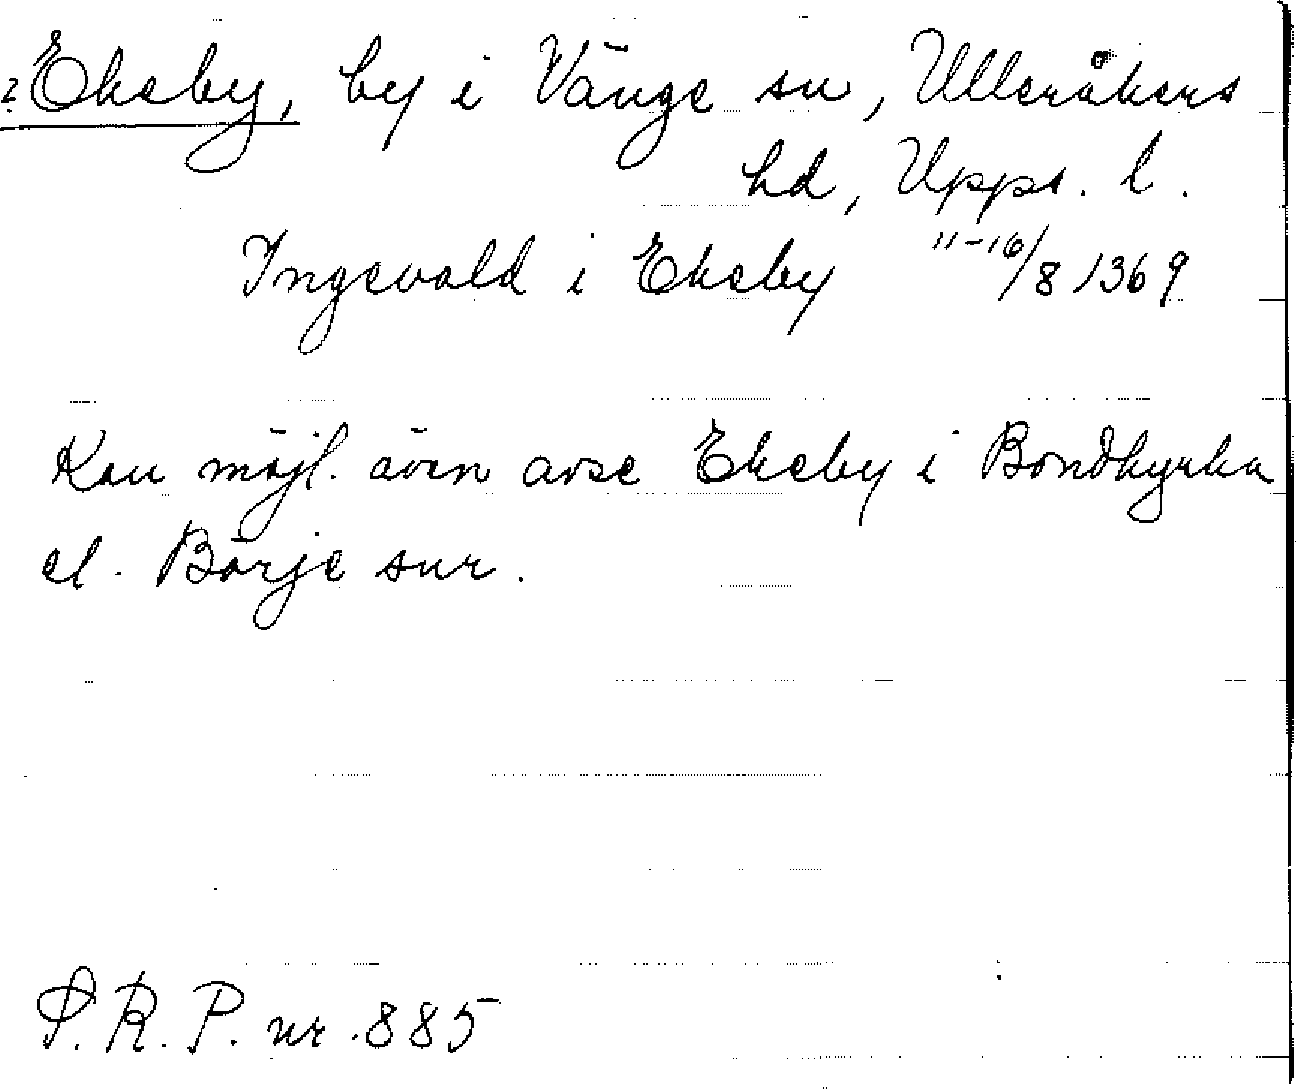 ? Ekeby, by i Vänge sn, Ulleråkers
hd, Upps. l.
Ingevald i Ekeby 11-16/8 1369
Kan möjl. även avse Ekeby i Bondkyrka
el. Börje snr.
S.R.P. nr. 885